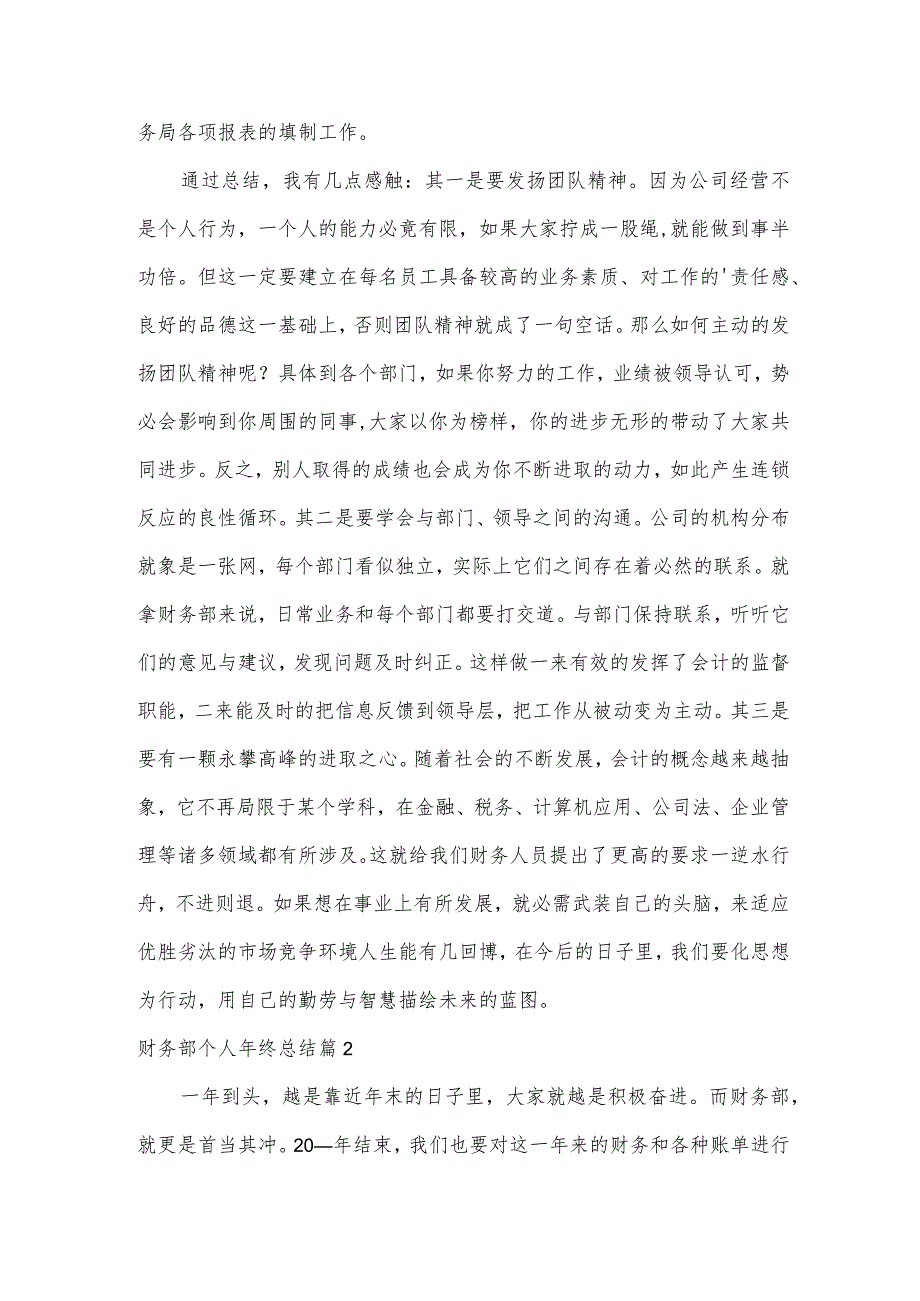 务局各项报表的填制工作。
通过总结，我有几点感触：其一是要发扬团队精神。因为公司经营不
是个人行为，一个人的能力必竟有限，如果大家拧成一股绳,就能做到事半
功倍。但这一定要建立在每名员工具备较高的业务素质、对工作的'责任感、
良好的品德这一基础上，否则团队精神就成了一句空话。那么如何主动的发
扬团队精神呢？具体到各个部门，如果你努力的工作，业绩被领导认可，势
必会影响到你周围的同事,大家以你为榜样，你的进步无形的带动了大家共
同进步。反之，别人取得的成绩也会成为你不断进取的动力，如此产生连锁
反应的良性循环。其二是要学会与部门、领导之间的沟通。公司的机构分布
就象是一张网，每个部门看似独立，实际上它们之间存在着必然的联系。就
拿财务部来说，日常业务和每个部门都要打交道。与部门保持联系，听听它
们的意见与建议，发现问题及时纠正。这样做一来有效的发挥了会计的监督
职能，二来能及时的把信息反馈到领导层，把工作从被动变为主动。其三是
要有一颗永攀高峰的进取之心。随着社会的不断发展，会计的概念越来越抽
象，它不再局限于某个学科，在金融、税务、计算机应用、公司法、企业管
理等诸多领域都有所涉及。这就给我们财务人员提出了更高的要求一逆水行
舟，不进则退。如果想在事业上有所发展，就必需武装自己的头脑，来适应
优胜劣汰的市场竞争环境人生能有几回博，在今后的日子里，我们要化思想
为行动，用自己的勤劳与智慧描绘未来的蓝图。
财务部个人年终总结篇2
一年到头，越是靠近年末的日子里，大家就越是积极奋进。而财务部，
就更是首当其冲。20—年结束，我们也要对这一年来的财务和各种账单进行